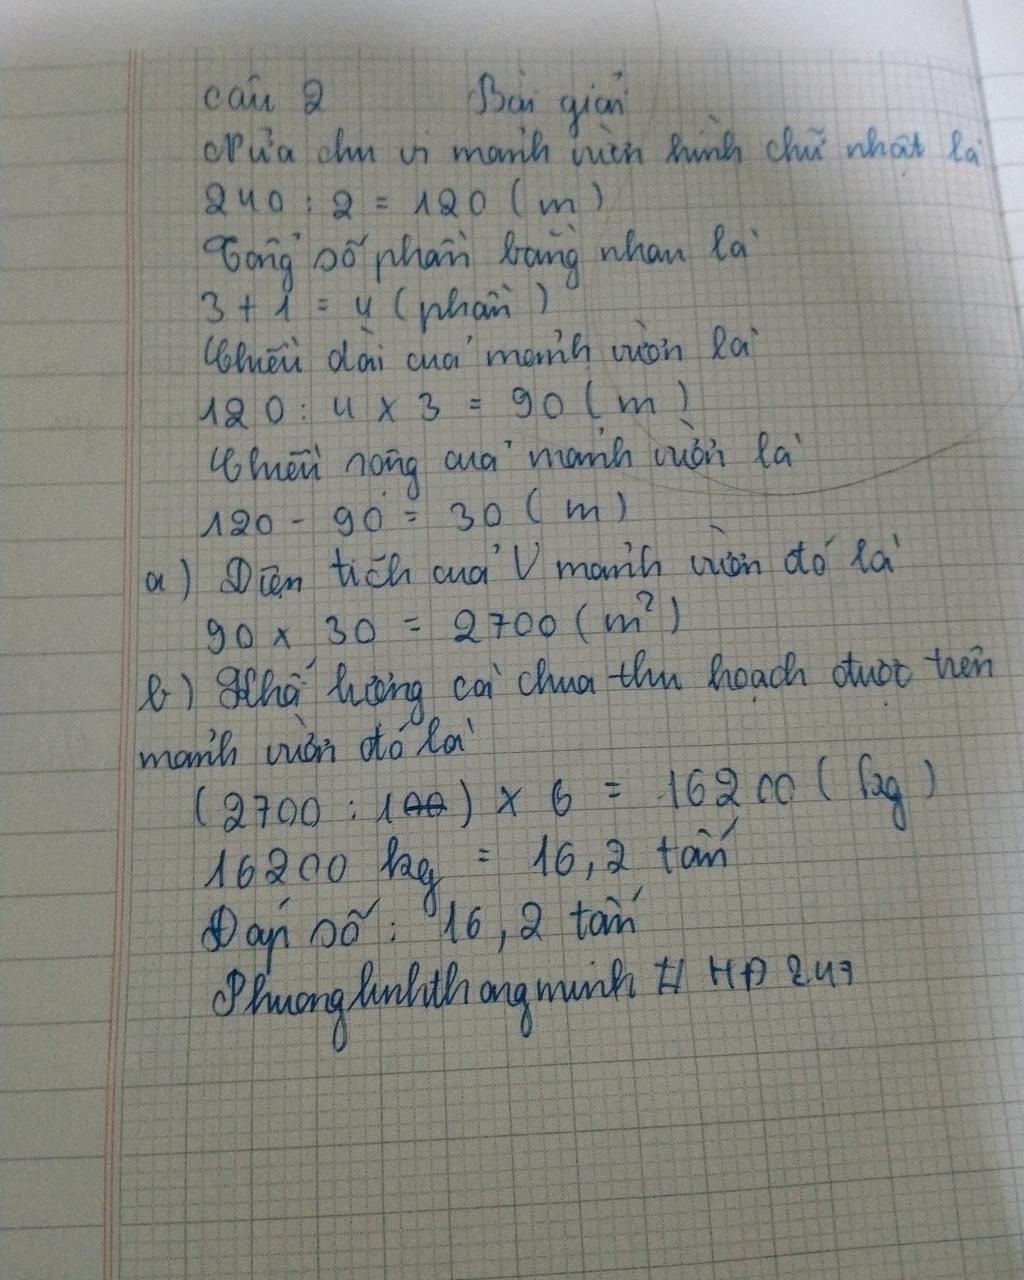 Câu 2 Bài giải
Nửa chu vi mảnh vườn hình chữ nhật là
240 : 2 = 120 (m)
Tổng số phần bằng nhau là
3 + 1 = 4 (phần)
Chiều dài của mảnh vườn là
120 : 4 x 3 = 90 (m)
Chiều rộng của mảnh vườn là
120 - 90 = 30 (m)
a) Diện tích của V mảnh vườn đó là
90 x 30 = 2700 (m²)
b) Khối lượng cà chua thu hoạch được trên
mảnh vườn đó là
(2700 : 100) x 6 = 16200 (kg)
16200 kg = 16,2 tấn
Đáp số : 16,2 tấn
Phuonglinhthongminh # HP 247